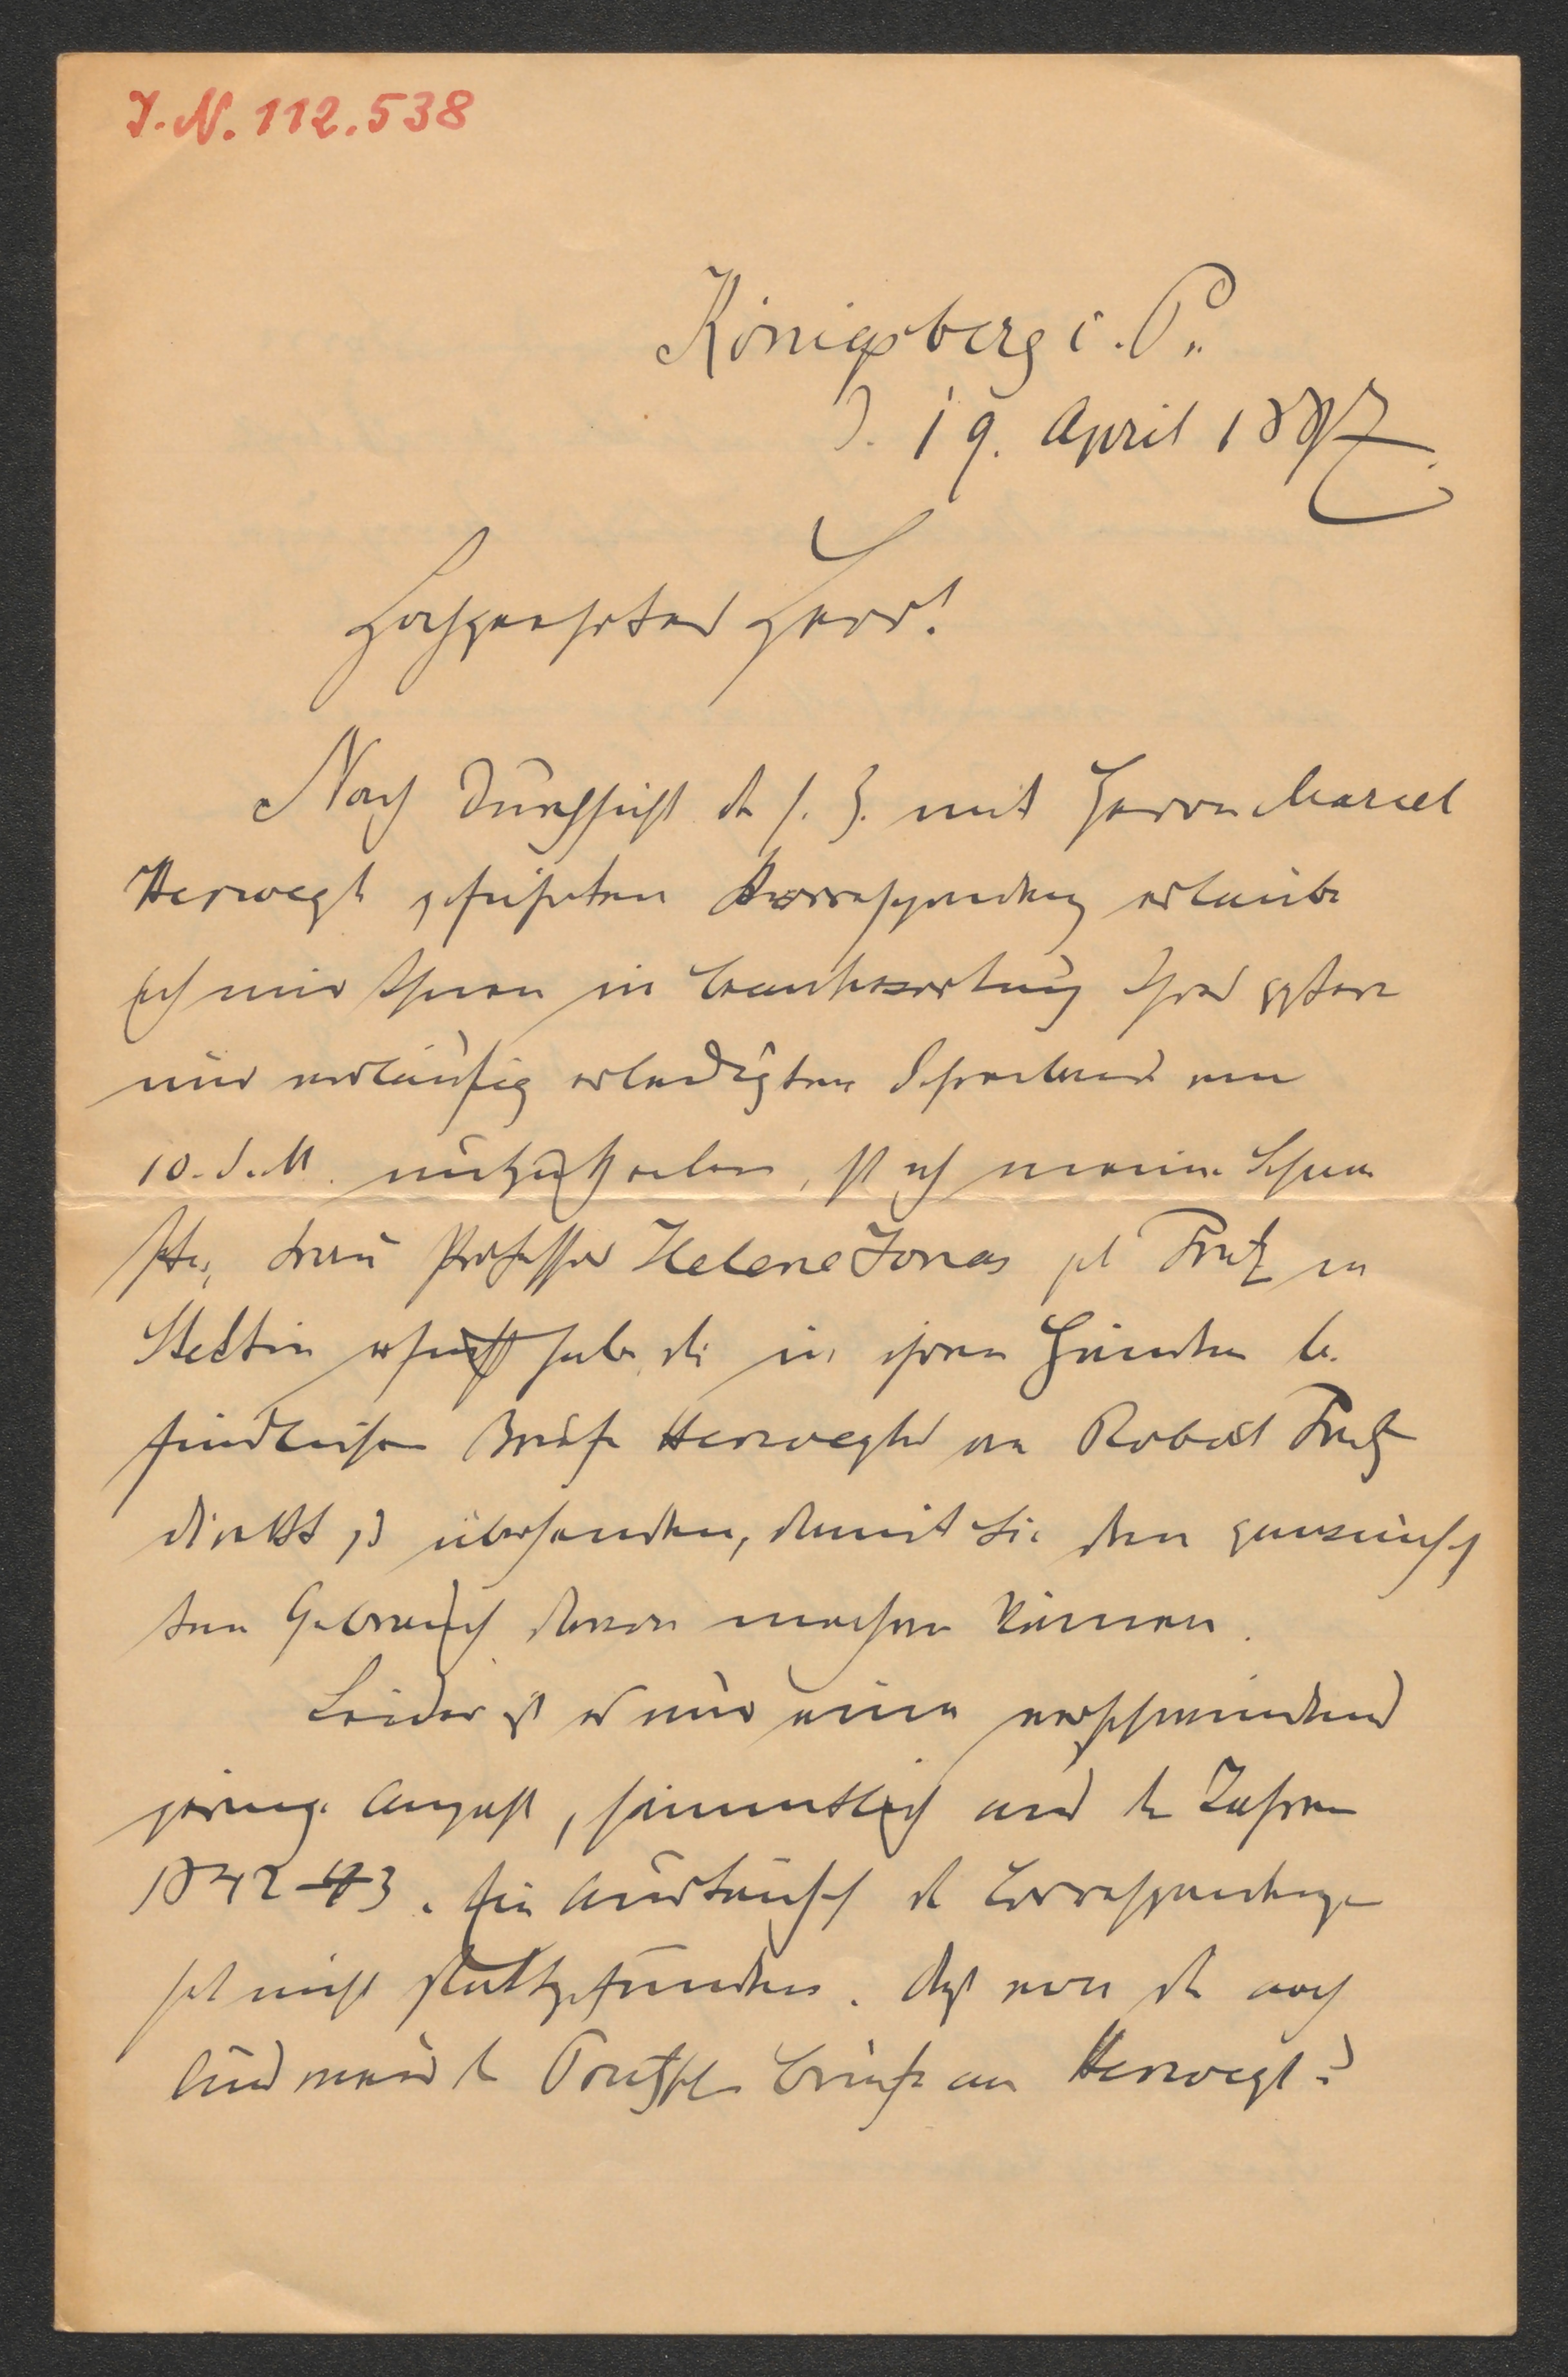 J. N. 112.538
Königsberg i. P.,
d. 19. April 1897.
Hochgeehrter Herr!
Nach Durchsicht der s. Z. mit Herrn Marcel
Herwegh geführten Korrespondenz erlaube
ich mir Ihnen in Beantwortung Ihres gestern
nur vorläufig erledigten Schreibens vom
10. d. M. mitzutheilen, daß ich meine Schwe
ster, Frau Professor Helene Jonas geb. Prutz in
Stettin ersucht habe, die in ihren Händen be
findlichen Briefe Herweghs an Robert Prutz
direkt zu übersenden, damit Sie den gewünsch
ten Gebrauch davon machen können.
Leider ist es nur eine verschwindend
geringe Anzahl, sämmtlich aus den Jahren
1842–43. Ein Austausch der Correspondenzen
hat nicht stattgefunden. Existiren die noch
und wären die Prutzschen Briefe an Herwegh?